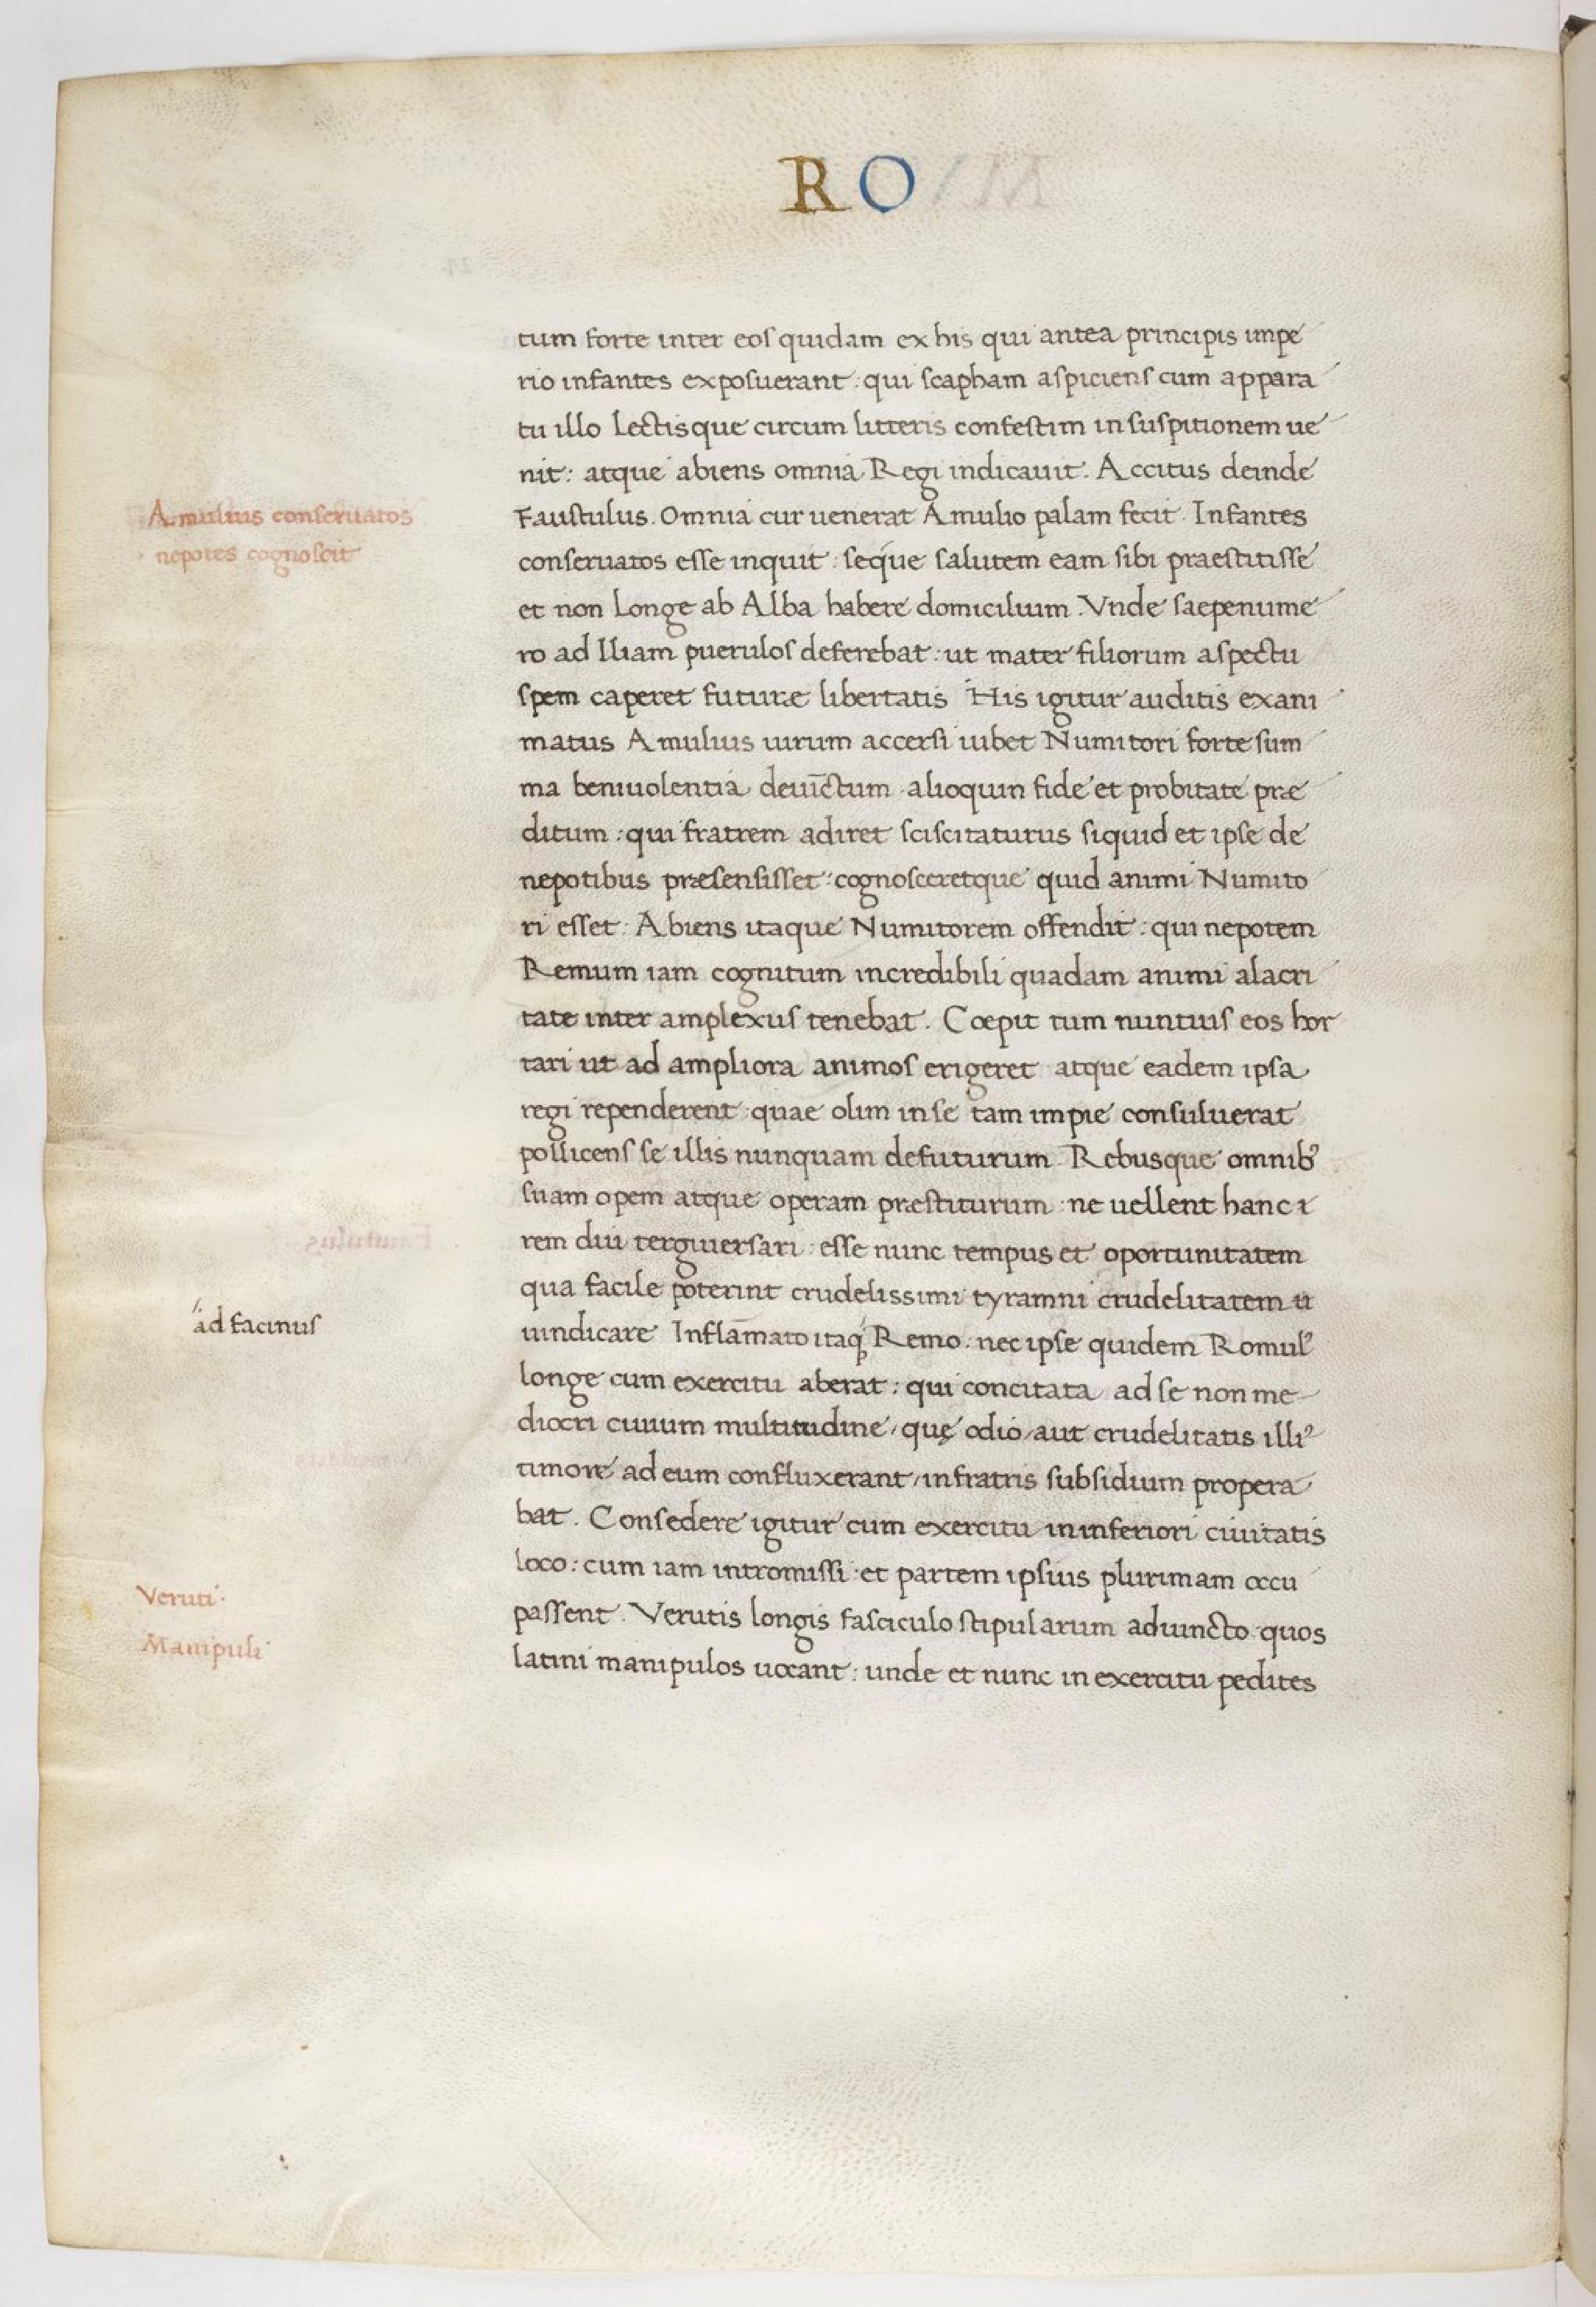 RO
tum forte inter eos quidam ex his qui antea principis impe
rio infantes exposuerant: qui scapham aspiciens cum appara
tu illo lectisque circum litteris confestim in suspitionem ue
nit: atque abiens omnia Regi indicauit. Accitus deinde
Amulius conseruatos
nepotes cognoscit
Faustulus. Omnia cur uenerat Amulio palam fecit. Infantes
conseruatos esse inquit: seque salutem eam sibi praestitisse
et non longe ab Alba habere domicilium. Vnde saepenume
ro ad Iliam puerulos deferebat: ut mater filiorum aspectu
spem caperet futuræ libertatis His igitur auditis exani
matus Amulius uirum accersi iubet Numitori forte sum
ma beniuolentia deuīctum alioquin fide et probitate præ
ditum: qui fratrem adiret sciscitaturus siquid et ipse de
nepotibus præsensisset: cognosceretque quid animi Numito
ri esset: Abiens itaque Numitorem offendit: qui nepotem
Remum iam cognitum incredibili quadam animi alacri
tate inter amplexus tenebat. Cœpit tum nuntius eos hor
tari ut ad ampliora animos erigeret atque eadem ipsa
regi rependerent: quae olim in se tam impie consuluerat
pollicens se illis nunquam defuturum. Rebusque omnib⁹
suam opem atque operam præstiturum: ne uellent hanc
rem diu tergiuersari: esse nunc tempus et oportunitatem
qua facile poterint crudelissimi tyramni crudelitatem
ad facinus
uindicare Inflamato itaq; Remo: nec ipse quidem Romul⁹
longe cum exercitu aberat: qui concitata ad se non me
diocri ciuium multitudine, quę odio, aut crudelitatis illi⁹
timore ad eum confluxerant, in fratris subsidium propera
bat. Consedere igitur cum exercitu in inferiori ciuitatis
loco: cum iam intromissi: et partem ipsius plurimam occu
Veruti.
passent. Verutis longis fasciculo stipularum adiuncto: quos
Manipuli
latini manipulos uocant: unde et nunc in exercitu pedites